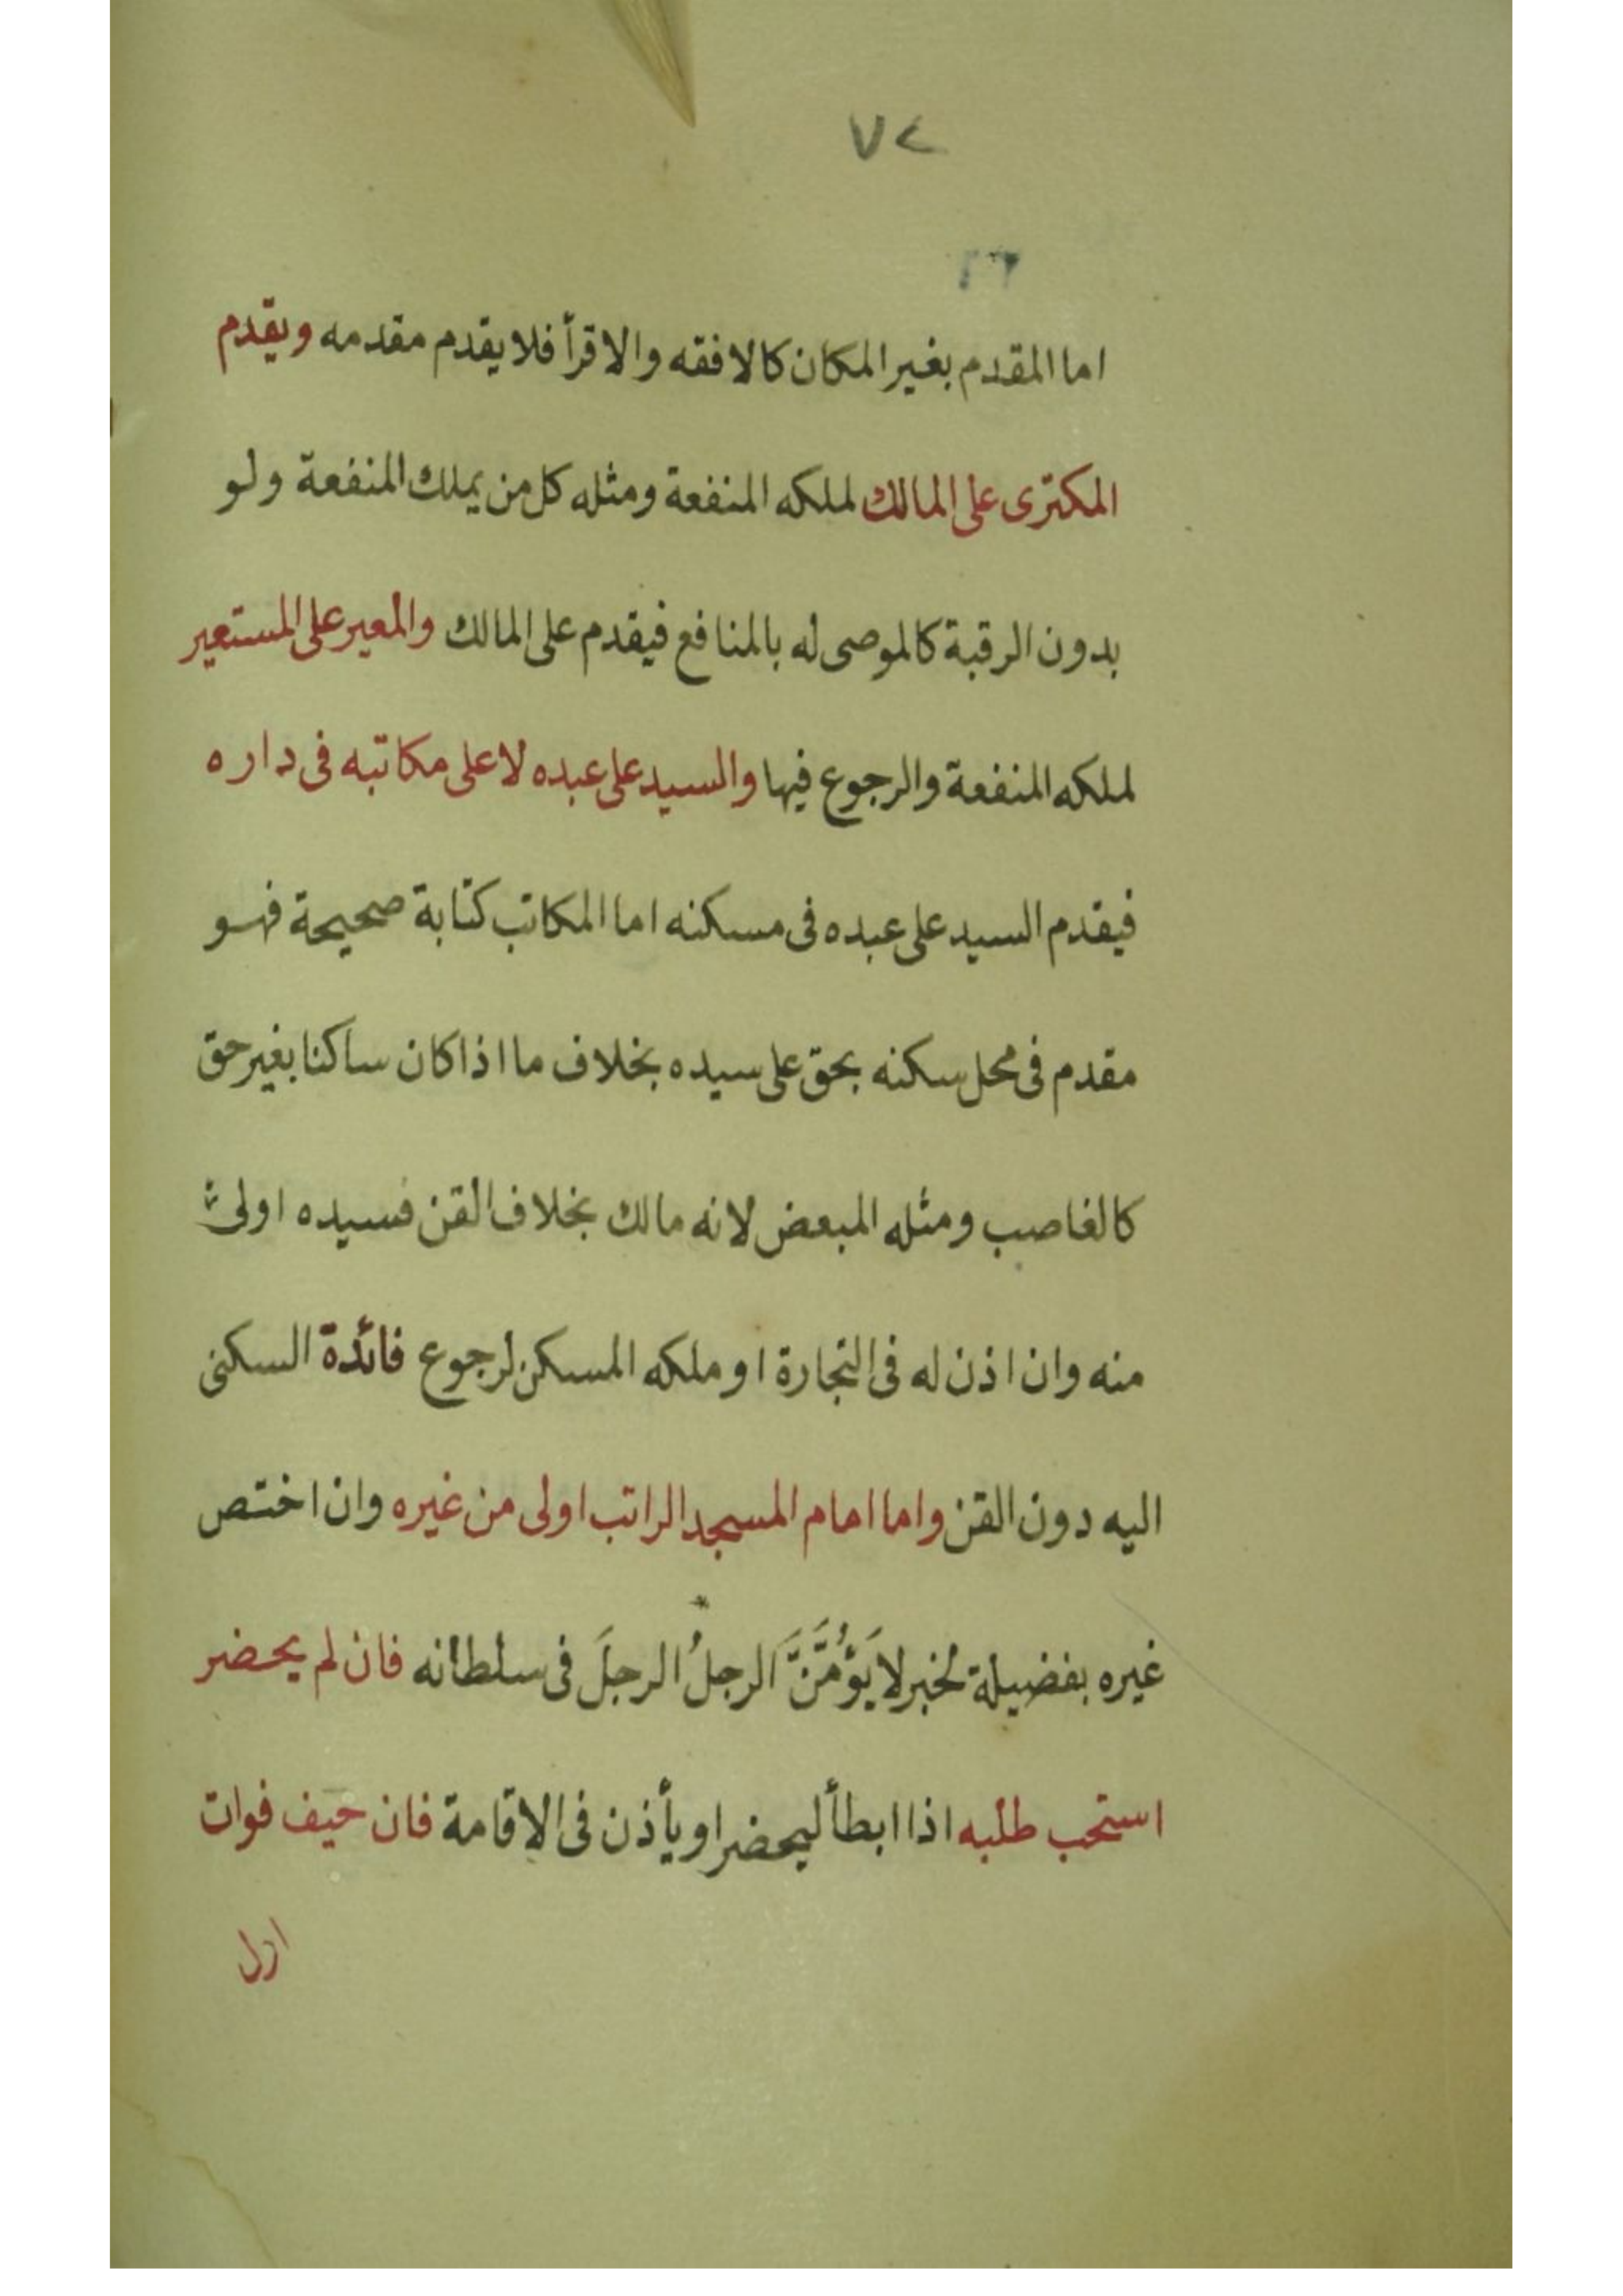 ٧٢
٢٦
اما المقدم بغير المكان كالافقه والاقرأ فلا يقدم مقدمه ويقدم
المكترى على المالك لملكه المنفعة ومثله كل من يملك المنفعة ولو
بدون الرقبة كالموصى له بالمنافع فيقدم على المالك والمعير على المستعير
لملكه المنفعة والرجوع فيها والسيد على عبده لا على مكاتبه فى داره
فيقدم السيد على عبده فى مسكنه اما المكاتب كتابة صحيحة فهو
مقدم فى محل سكنه بحق على سيده بخلاف ما اذا كان ساكنا بغير حق
كالغاصب ومثله المبعض لانه مالك بخلاف القن فسيده اولى
منه وان اذن له فى التجارة او ملكه المسكن لرجوع فائدة السكنى
اليه دون القن واما امام المسجد الراتب اولى من غيره وان اختص
غيره بفضيلة لخبر لا يَؤُمَّنَّ الرجلُ الرجلَ فى سلطانه فان لم يحضر
استحب طلبه اذا ابطأ ليحضر او يأذن فى الاقامة فان خيف فوات
اول